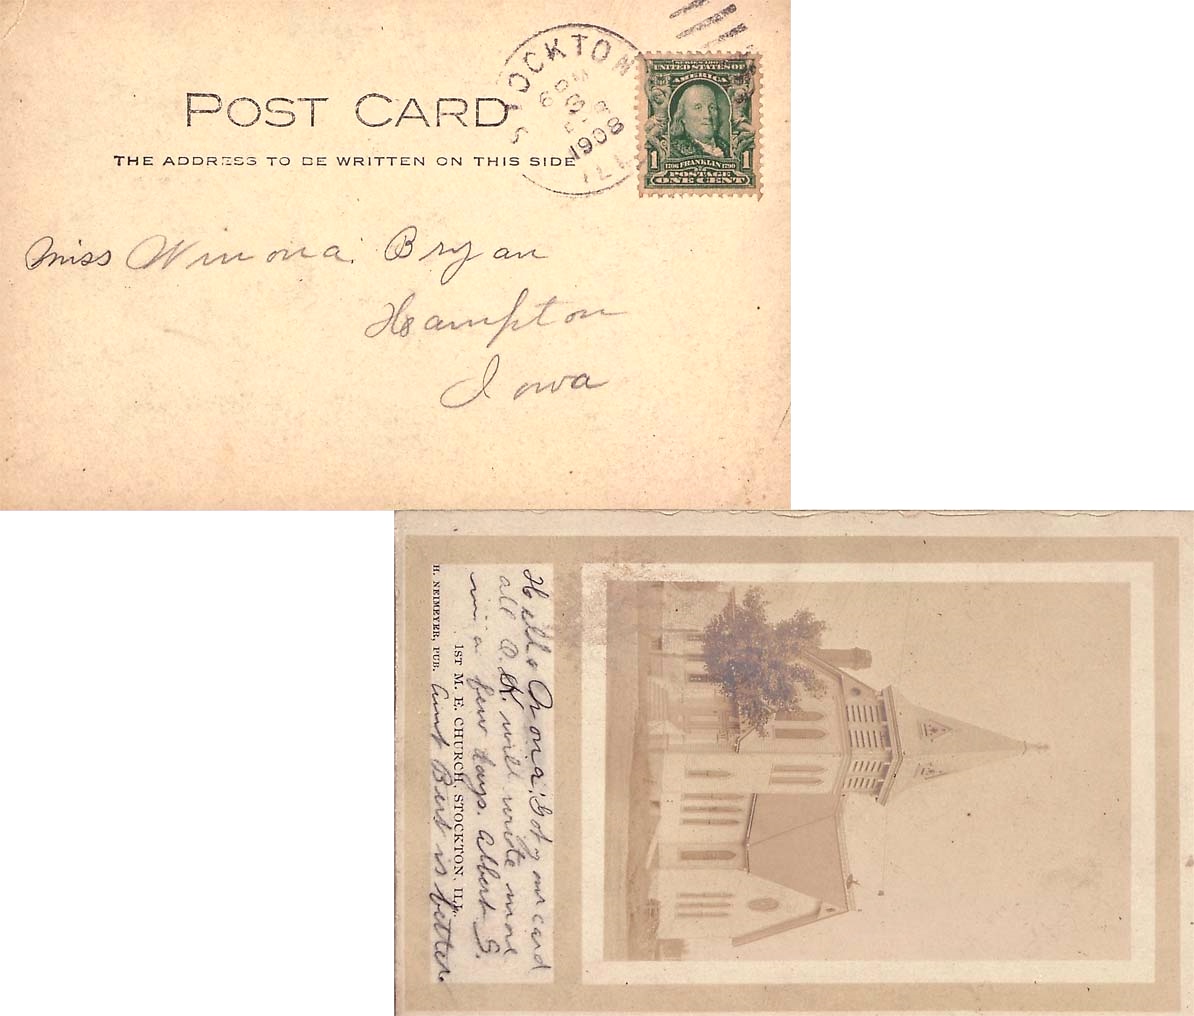 POST CARD
THE ADDRESS TO BE WRITTEN ON THIS SIDE
STOCKTON
1908
ILL.
SERIES 1902
UNITED STATES OF
AMERICA
1 1706 FRANKLIN 1790 1
POSTAGE
ONE CENT
Miss Winona Bryan
Hampton
Iowa
Hello Onona; Got your card
all O.K. will write more
in a few days. Albert S.
1ST M. E. CHURCH, STOCKTON, ILL.
H. NEIMEYER, PUB. Aunt Bert is better